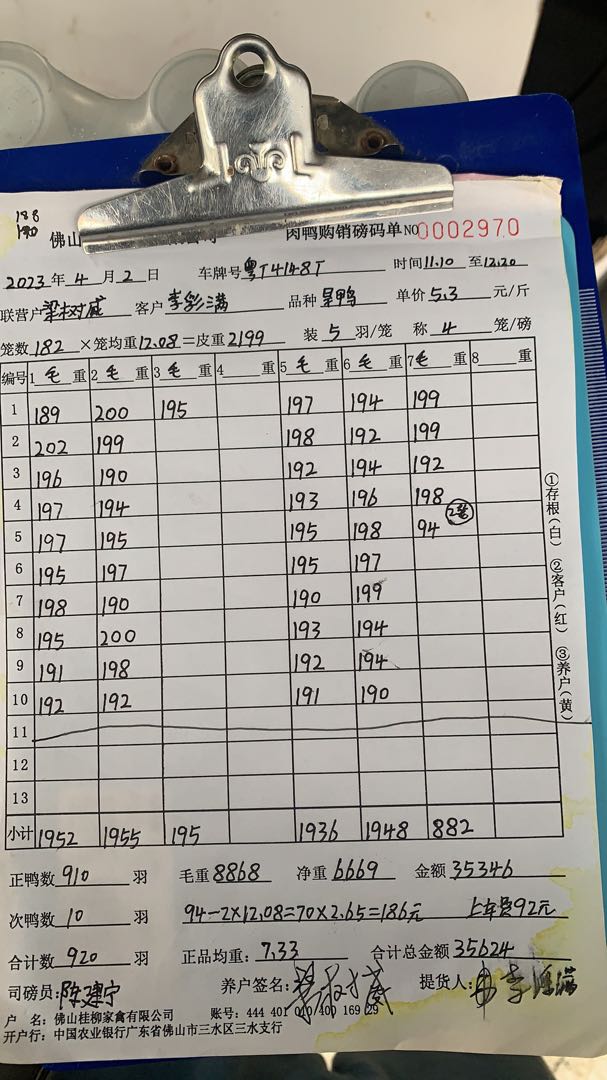 188
190
佛山 肉鸭购销磅码单 NO 0002970
2023 年 4 月 2 日 车牌号 粤T4148T 时间 11.10 至 12.20
联营户 梁树威 客户 李彩满 品种 呆鸭 单价 5.3 元/斤
笼数 182 ×笼均重 12.08 =皮重 2199 装 5 羽/笼 称 4 笼/磅
编号 1 毛 重 2 毛 重 3 毛 重 4 重 5 毛 重 6 毛 重 7 毛 重 8 重
1 189 200 195 197 194 199
2 202 199 198 192 199
3 196 190 192 194 192
4 197 194 193 196 198
5 197 195 195 198 94 2笼
6 195 197 195 197
7 198 190 190 199
8 195 200 193 194
9 191 198 192 194
10 192 192 191 190
11
12
13
小计 1952 1955 195 1936 1948 882
①存根(白) ②客户(红) ③养户(黄)
正鸭数 910 羽 毛重 8868 净重 6669 金额 35346
次鸭数 10 羽 94-2×12.08=70×2.65=186元 上车费92元
合计数 920 羽 正品均重: 7.33 合计总金额 35624
司磅员: 陈建宁 养户签名: 提货人:
户 名: 佛山桂柳家禽有限公司 账号: 444 401 010 400 169 29
开户行: 中国农业银行广东省佛山市三水区三水支行